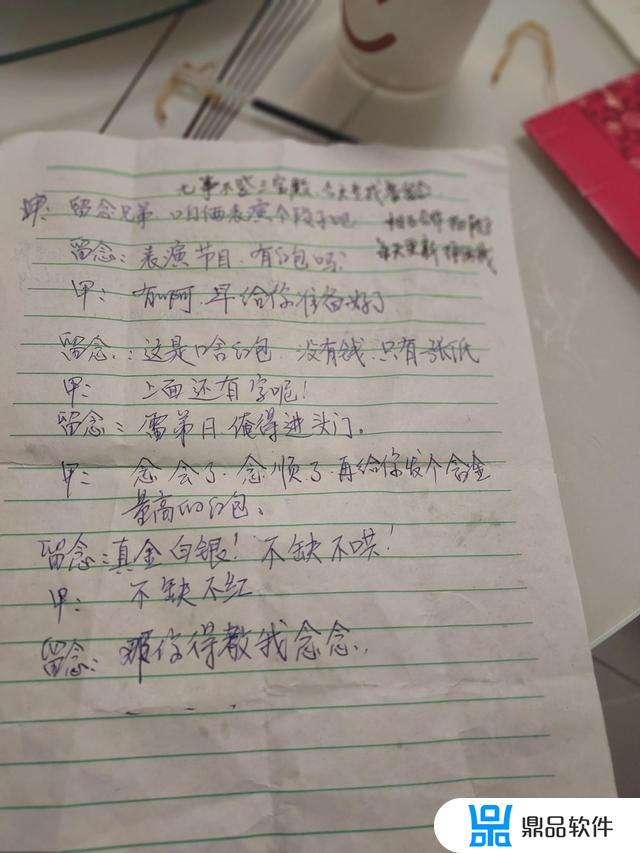 无事不登三宝殿,
甲: 留念兄弟,咱俩表演个段子吧
每天更新
留念: 表演节目,有红包吗?
甲: 有啊,早给你准备好了
留念: 这是啥红包 没有钱,只有张纸
甲: 上面还有字呢!
留念: 俺得进头门。
甲: 念会了,念顺了,再给你发个含金
量高的红包、
留念: 真金白银! 不缺不哄!
甲: 不缺不红
留念: 那你得教我念念.
鼎品软件